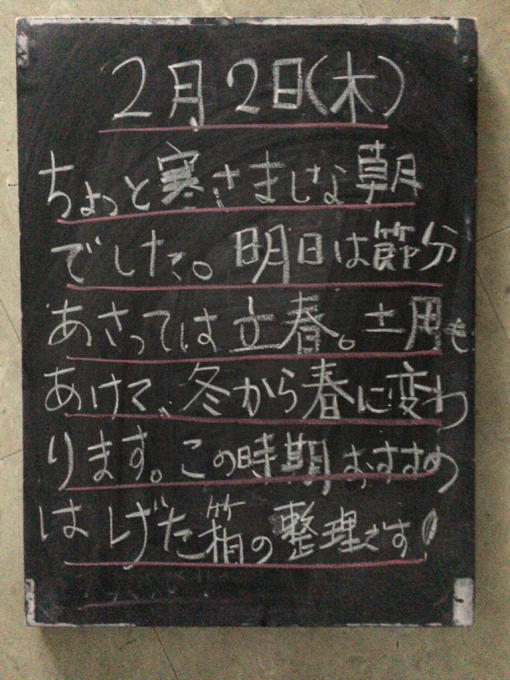 2月2日(木)
ちょっと寒さましな朝
でした。明日は節分
あさっては立春。土用も
あけて、冬から春に変わ
ります。この時期おすすめ
は げた箱の整理です!